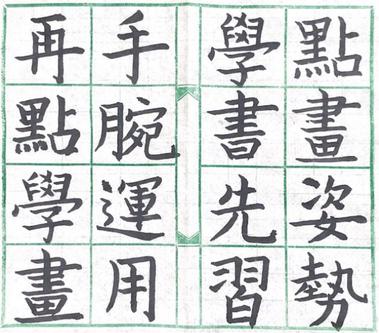 點畫姿勢
學書先習
手腕運用
再點學畫